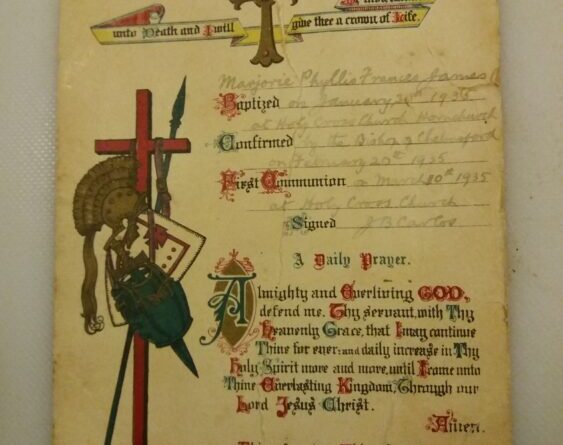 unto Death and I will give thee a crown of Life.
Marjorie Phyllis Frances James
Baptized on January 20th 1935
at Holy Cross Church Hornchurch
Confirmed by the Bishop of Chelmsford
on February 20th 1935
First Communion on March 10th 1935
at Holy Cross Church
Signed J B Carlos
A Daily Prayer.
Almighty and Everliving GOD,
defend me, Thy servant, with Thy
Heavenly Grace, that I may continue
Thine for ever: and daily increase in Thy
Holy Spirit more and more, until I come unto
Thine Everlasting Kingdom, Through our
Lord Jesus Christ.
Amen.